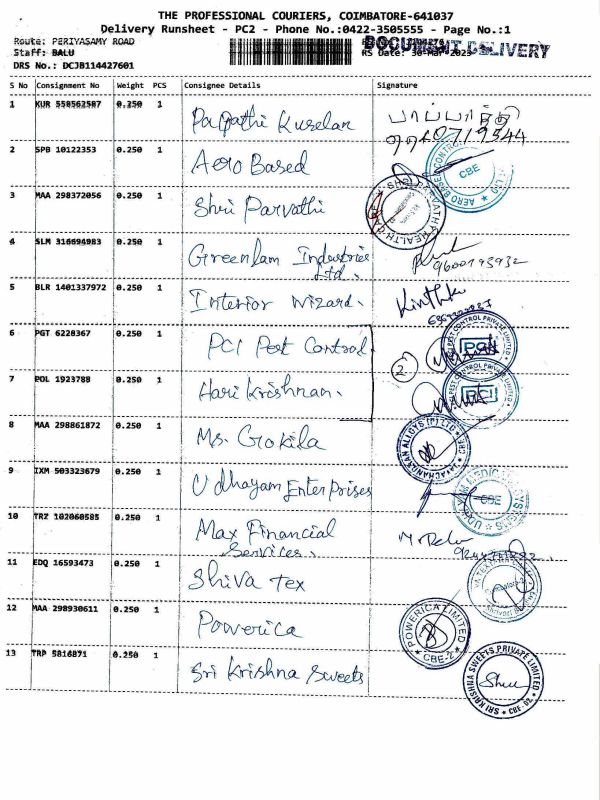 THE PROFESSIONAL COURIERS, COIMBATORE-641037
Delivery Runsheet - PC2 - Phone No.:0422-3505555 - Page No.:1
Route: PERIYASAMY ROAD
DOCUMENT DELIVERY
Staff: BALU RS Date: 30-Mar-2023
DRS No.: DCJB114427601
S No Consignment No Weight PCS Consignee Details Signature
1 KUR 550562507 0.250 1 Pappathi Kuselan பாப்பாத்தி
2 SPB 10122353 0.250 1 Aero Based CBE
3 MAA 298372056 0.250 1 Shri Parvathi
4 SLM 316694983 0.250 1 Greenlam Industries
Ltd.
5 BLR 1401337972 0.250 1 Interior Wizard.
6 PGT 6228367 0.250 1 PCI Pest Control 2 PEST CONTROL PRIVATE LIMITED PCI
7 POL 1923788 0.250 1 Hari Krishnan. PEST CONTROL PRIVATE LIMITED PCI
8 MAA 298861872 0.250 1 Ms. Gokila
9 IXM 503323679 0.250 1 Udhayam Enterprises CBE
10 TRZ 102060585 0.250 1 Max Financial
Services.
11 EDQ 16593473 0.250 1 Shiva Tex
12 MAA 298930611 0.250 1 Powerica POWERICA LIMITED CBE-2
13 TRP 5816871 0.250 1 Sri Krishna Sweets SRI KRISHNA SWEETS PRIVATE LIMITED CBE-02